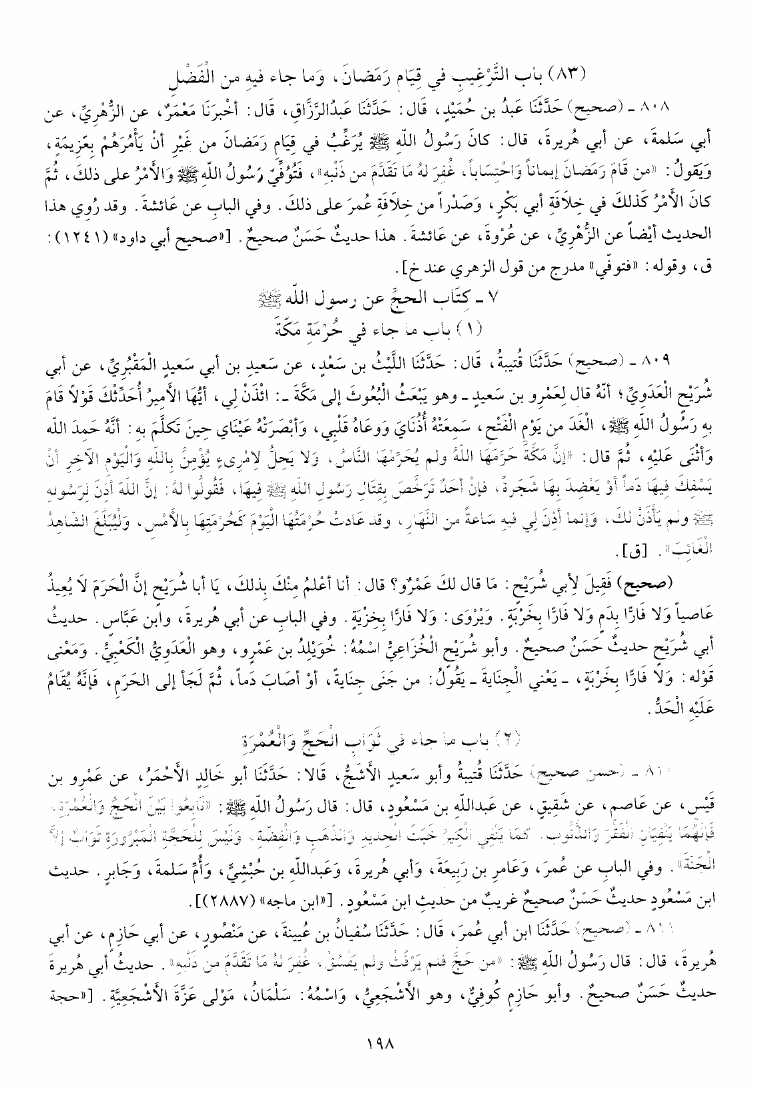 (٨٣) باب التَّرْغِيبِ في قِيَامِ رَمَضانَ، وَما جاء فيهِ من الْفَضْلِ
٨٠٨ ـ (صحيح) حَدَّثَنَا عَبدُ بن حُمَيْدٍ، قَال: حَدَّثَنَا عَبدُالرَّزَّاقِ، قَال: أخْبرَنَا مَعْمَرٌ، عن الزُّهْرِيِّ، عن
أبي سَلمةَ، عن أبي هُريرةَ، قال: كانَ رَسُولُ اللهِ ﷺ يُرَغِّبُ في قِيَامِ رَمَضانَ من غَيْرِ أنْ يَأْمُرَهُمْ بِعَزِيمَةٍ،
وَيَقولُ: «من قَامَ رَمَضانَ إيماناً وَاحْتِسَاباً، غُفِرَ لهُ مَا تَقَدَّمَ من ذَنْبِهِ»، فَتُوُفِّيَ رَسُولُ اللهِ ﷺ وَالأمْرُ على ذلكَ، ثُمَّ
كانَ الأمْرُ كَذلكَ في خِلَافَةِ أبي بَكْرٍ، وَصَدْراً من خِلَافَةِ عُمرَ على ذلكَ. وفي البابِ عن عَائشةَ. وقد رُوِي هذا
الحديث أيْضاً عن الزُّهْرِيِّ، عن عُرْوةَ، عن عَائشةَ. هذا حديثٌ حَسَنٌ صحيحٌ. [«صحيح أبي داود» (١٢٤١):
ق، وقوله: «فتوفّي» مدرج من قول الزهري عند خ].
٧ ـ كِتَاب الحجِّ عن رسول اللهِ ﷺ
(١) باب ما جاء في حُرْمَةِ مَكّةَ
٨٠٩ ـ (صحيح) حَدَّثَنَا قُتيبةُ، قَال: حَدَّثَنَا اللَّيْثُ بن سَعْدٍ، عن سَعيدِ بن أبي سَعيدٍ الْمَقْبُرِيِّ، عن أبي
شُرَيْحٍ الْعَدَوِيِّ؛ أنَّهُ قال لِعَمْرِو بن سَعيدٍ ـ وهو يَبْعَثُ الْبُعُوثَ إلى مَكَّةَ ـ: ائْذَنْ لِي، أيُّهَا الأمِيرُ أُحَدِّثْكَ قَوْلاً قَامَ
بهِ رَسُولُ اللهِ ﷺ، الْغَدَ من يَوْمِ الْفَتْحِ، سَمِعَتْهُ أُذُنَايَ وَوعَاهُ قَلْبِي، وَأبْصَرَتْهُ عَيْنَاي حِينَ تَكَلَّمَ بهِ: أنَّهُ حَمِدَ الله
وَأثْنَى عَليْهِ، ثُمَّ قال: «إنَّ مَكّةَ حَرَّمَها اللهُ ولم يُحَرِّمْهَا النَّاسُ، وَلا يَحِلُّ لامْرِىءٍ يُؤْمِنُ بِاللهِ وَالْيَوْمِ الآخِرِ أنْ
يَسْفِكَ فِيهَا دَماً أوْ يَعْضِدَ بِهَا شَجَرةً، فإنْ أحَدٌ تَرَخَّصَ بِقِتَالِ رَسُولِ اللهِ ﷺ فِيهَا، فَقُولُوا لهُ: إنَّ اللهَ أذِنَ لِرَسُولِهِ
ﷺ ولم يَأْذَنْ لكَ، وَإنما أذِنَ لِي فيهِ سَاعةً من النَّهارِ، وقد عَادتْ حُرْمَتُهَا الْيَوْمَ كَحُرْمَتِهَا بِالأمْسِ، وَلْيُبَلِّغِ الشّاهِدُ
الْغَائِبَ». [ق].
(صحيح) فَقِيلَ لأبي شُرَيْحٍ: مَا قال لكَ عَمْرٌو؟ قال: أنا أعْلمُ مِنْكَ بِذلكَ، يَا أبا شُرَيْحٍ إنَّ الْحَرَمَ لَا يُعِيذُ
عَاصِياً وَلا فَارًّا بِدَمٍ وَلا فَارًّا بِخَرْبَةٍ. وَيُرْوَى: وَلا فَارًّا بِخِزْيَةٍ. وفي البابِ عن أبي هُريرةَ، وابن عَبَّاسٍ. حديثُ
أبي شُرَيْحٍ حديثٌ حَسَنٌ صحيحٌ. وأبو شُرَيْحٍ الْخُزَاعِيُّ اسْمُهُ: خُوَيْلِدُ بن عَمْرٍو، وهو الْعَدَوِيُّ الْكَعْبِيُّ. وَمَعْنى
قَوْله: وَلا فَارًّا بِخَرْبَةٍ، ـ يَعْني الْجِنَايةَ ـ يَقُولُ: من جَنَى جِنايةً، أوْ أصَابَ دَماً، ثُمَّ لَجَأ إلى الحَرَمِ، فَإنَّهُ يُقَامُ
عَلَيْهِ الْحَدُّ.
(٢) باب ما جاء في ثَوَابِ الْحَجِّ وَالْعُمْرَةِ
٨١٠ ـ (حسن صحيح) حَدَّثَنَا قُتيبةُ وأبو سَعيدٍ الأشَجُّ، قَالا: حَدَّثَنَا أبو خَالِدٍ الأحْمَرُ، عن عَمْرِو بن
قَيْسٍ، عن عَاصمٍ، عن شَقِيقٍ، عن عَبداللهِ بن مَسْعُودٍ، قال: قال رَسُولُ اللهِ ﷺ: «تَابِعُوا بَيْنَ الْحَجِّ وَالْعُمْرَةِ،
فَإنَّهُمَا يَنْفِيَانِ الْفَقْرَ وَالذُّنُوبَ، كمَا يَنْفِي الْكِيرُ خَبَثَ الْحَدِيدِ وَالذَّهَبِ وَالْفِضّةِ، وَلَيْسَ لِلْحَجّةِ الْمَبْرُورَةِ ثَوَابٌ إلاَّ
الْجَنّةُ». وفي البابِ عن عُمرَ، وَعَامرِ بن رَبِيعَةَ، وَأبي هُريرةَ، وَعَبداللهِ بن حُبْشِيٍّ، وَأُمِّ سَلمةَ، وَجَابرٍ. حديث
ابن مَسْعُودٍ حديثٌ حَسَنٌ صحيحٌ غريبٌ من حديثِ ابن مَسْعُودٍ. [«ابن ماجه» (٢٨٨٧)].
٨١١ ـ (صحيح) حَدَّثَنَا ابن أبي عُمرَ، قَال: حَدَّثَنَا سُفيانُ بن عُيينةَ، عن مَنْصُورٍ، عن أبي حَازِمٍ، عن أبي
هُريرةَ، قال: قال رَسُولُ اللهِ ﷺ: «من حَجَّ فَلم يَرْفُثْ ولم يَفْسُقْ، غُفِرَ لهُ مَا تَقَدَّمَ من ذَنْبِهِ». حديثُ أبي هُريرةَ
حديثٌ حَسَنٌ صحيحٌ. وأبو حَازِمٍ كُوفِيٌّ، وهو الأشْجَعِيُّ، وَاسْمُهُ: سَلْمَانُ، مَوْلى عَزَّةَ الأشْجَعِيَّةِ. [«حجة
١٩٨